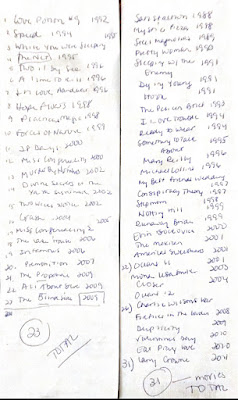 1 Love Potion #9 1992
2 Speed 1994
3 While You Were Sleeping
4 The Net 1995
5 Two If By Sea 1996
6 A Time To Kill 1996
7 In Love And War 1996
8 Hope Floats 1998
9 Practical Magic 1998
10 Forces of Nature 1999
11 28 Days 2000
12 Miss Congeniality 2000
13 Murder By Numbers 2002
14 Divine Secrets of the
Ya Ya 2002
15 Two Weeks Notice 2002
16 Crash 2004
17 Miss Congeniality 2 2005
18 The Lake House 2006
19 Infamous 2006
20 Premonition 2007
21 The Proposal 2009
22 All About Steve 2009
23 The 2009
24
23
TOTAL
Satisfaction 1988
Mystic Pizza 1988
Steel Magnolias 1989
Pretty Woman 1990
Sleeping w/ the
Enemy 1991
Dying Young 1991
Hook 1991
The Pelican Brief 1993
I Love Trouble 1994
Ready to Wear 1994
Something To Talk
About 1995
Mary Reilly 1996
Michael Collins 1996
My Best Friends Wedding 1997
Conspiracy Theory 1997
Stepmom 1998
Notting Hill 1999
Runaway Bride 1999
Erin Brockovich 2000
The Mexican 2001
America's Sweethearts 2001
Oceans 11 2001
Mona Lisa Smile 2003
Closer 2004
Oceans 12
Charlie Wilsons War
Fireflies in the Garden 2008
Duplicity 2009
Valentines Day 2010
Eat Pray Love 2010
31) Larry Crowne 2011
31 movies
TOTAL